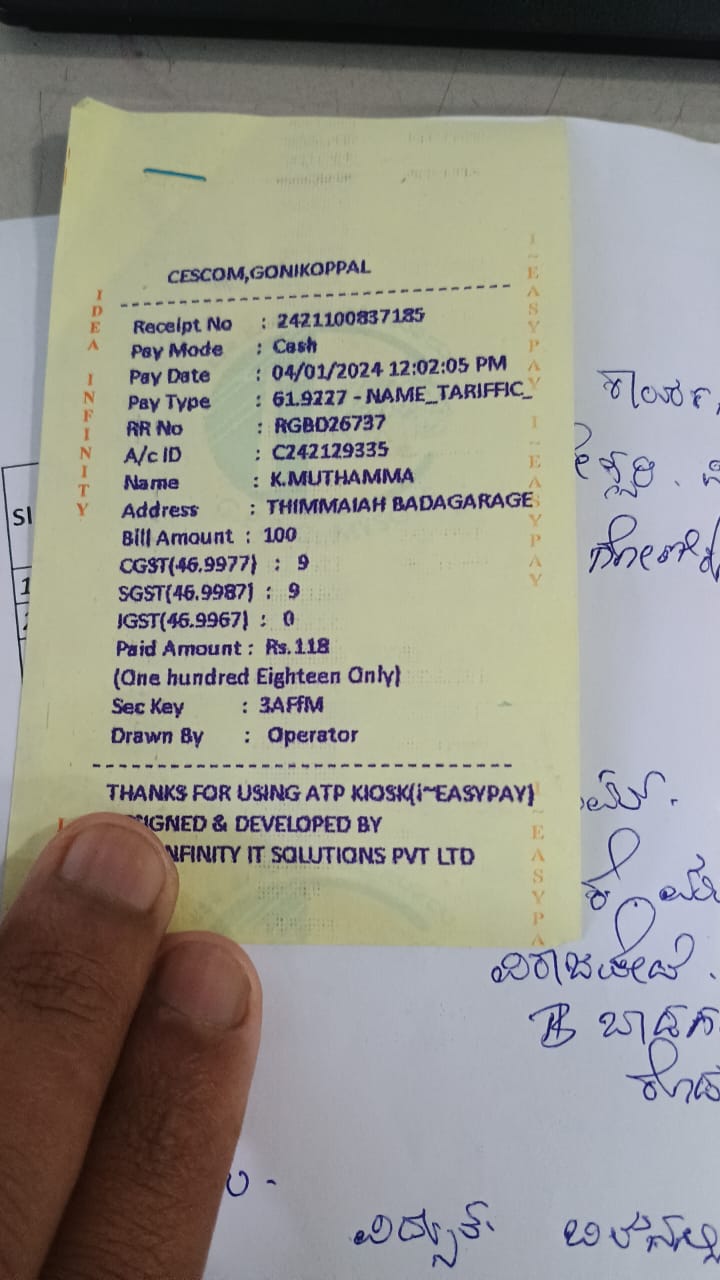 CESCOM,GONIKOPPAL
Receipt No : 2421100837185
Pay Mode : Cash
Pay Date : 04/01/2024 12:02:05 PM
Pay Type : 61.9227 - NAME_TARIFFIC_
RR No : RGBD26737
A/c ID : C242129335
Name : K.MUTHAMMA
Address : THIMMAIAH BADAGARAGE
Bill Amount : 100
CGST(46.9977) : 9
SGST(46.9987) : 9
IGST(46.9967) : 0
Paid Amount : Rs.118
(One hundred Eighteen Only)
Sec Key : 3AFfM
Drawn By : Operator
THANKS FOR USING ATP KIOSK(i~EASYPAY)
IGNED & DEVELOPED BY
NFINITY IT SOLUTIONS PVT LTD
IDEA INFINITY
I~EASYPAY I~EASYPAY
I~EASYPA
Sl
1
ವಿರಾಜಪೇಟೆ .
ವಿದ್ಯುತ್